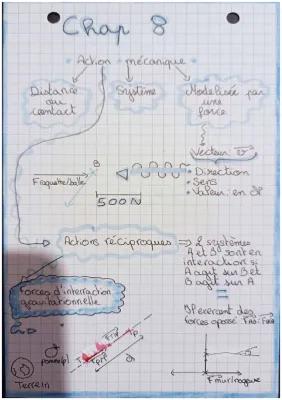 Chap 8
Action mécanique
Distance
ou
contact
Système
Modélisée par
une
force
Vecteur
• Direction
• Sens
• Valeur: en
Raquette/balle
B
500 N
Actions réciproques => 2 systèmes
A et B sont en
interaction si
A agit sur B et
B agit sur A
Forces d'interaction
gravitationnelle
forces opposé
pomme(p)
P
d
T
Terre(T)